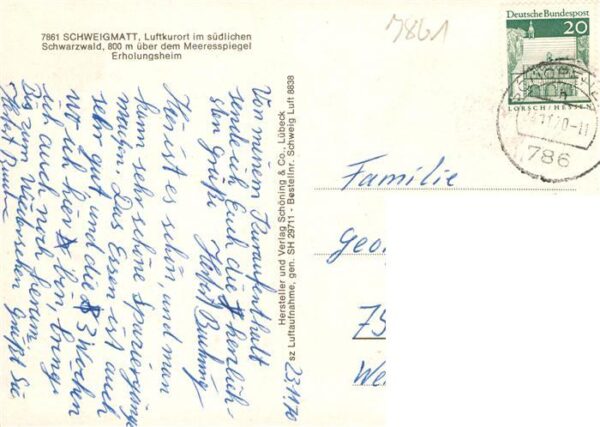 7861 SCHWEIGMATT, Luftkurort im südlichen
Schwarzwald, 800 m über dem Meeresspiegel
Erholungsheim
7861
Deutsche Bundespost
20
LORSCH/HESSEN
70-11
786
Hersteller und Verlag Schöning & Co., Lübeck
sz Luftaufnahme, gen. SH 29711 - Bestellnr. Schweig Luft 8838
23.11.70
Von meinem Kuraufenthalt
sende ich Euch die herzlich-
sten Grüße
Hier ist es schön, und man
kann sehr schöne Spaziergänge
machen. Das Essen ist auch
sehr gut, und die 3 Wochen
wo ich hier bin, bringe
ich auch noch herum
Bis zum Wiedersehen grüßt Sie
Familie
Geor
75
We